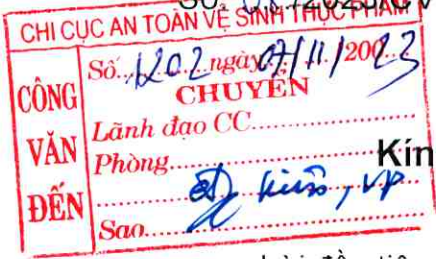 Số: 08./2023/CV
CHI CỤC AN TOÀN VỆ SINH THỰC PHẨM
CÔNG VĂN ĐẾN
Số: 1202 ngày 07/11/2023
CHUYỂN
Lãnh đạo CC
Phòng
Kín
Sao